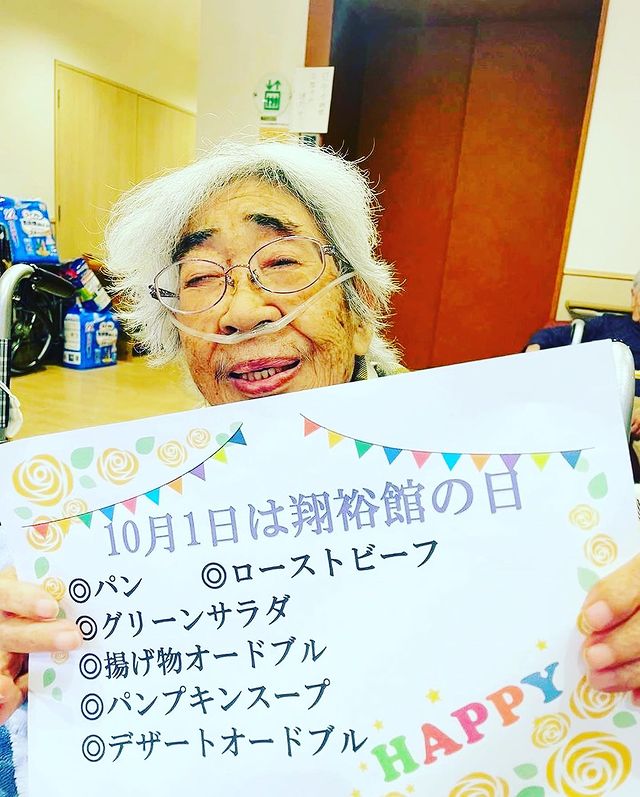 10月1日は翔裕館の日
◎パン ◎ローストビーフ
◎グリーンサラダ
◎揚げ物オードブル
◎パンプキンスープ
◎デザートオードブル
HAPPY